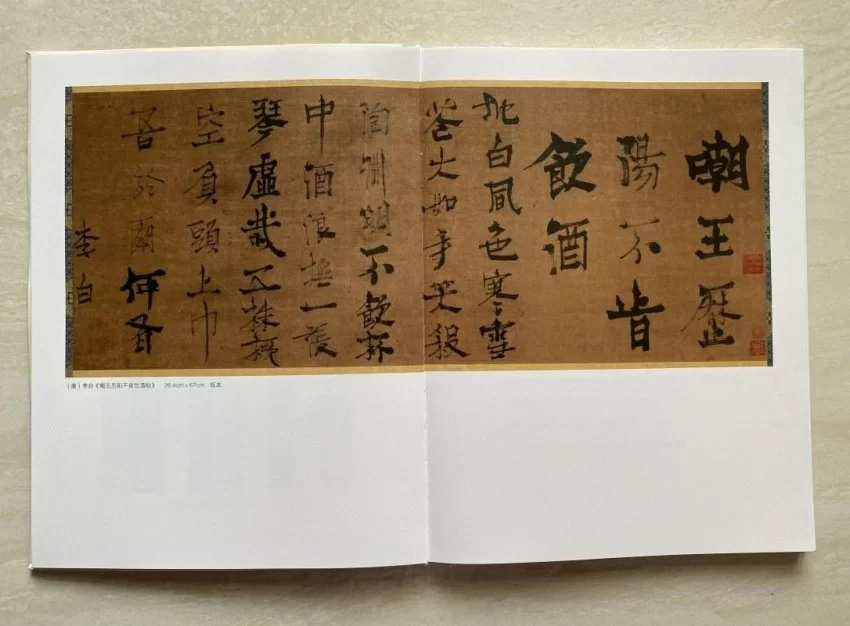 嘲王歷
陽不肯
飲酒
地白風色寒雪
花大如手笑殺
陶淵明不飲杯
中酒浪撫一張
琴虛栽五株柳
空負頭上巾
吾於爾何有
李白
〔唐〕李白《嘲王历阳不肯饮酒帖》 26.4cm×67cm 纸本